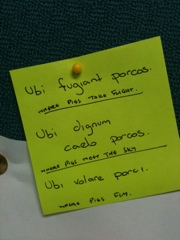 Ubi fugiant porcos.
WHERE PIGS TAKE FLIGHT.
Ubi dignum
caelo porcos.
WHERE PIGS MEET THE SKY
Ubi volare porci.
WHERE PIGS FLY.